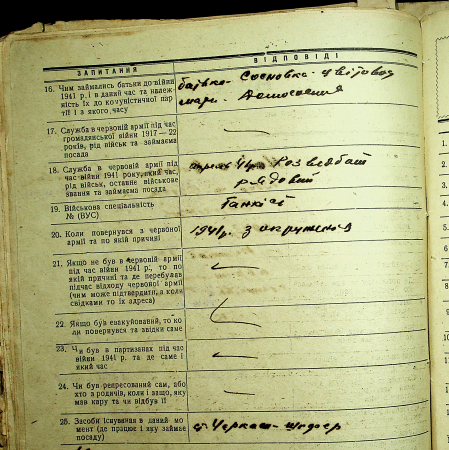 ЗАПИТАННЯ
ВІДПОВІДІ
16. Чим займались батьки до війни
1941 р. і в даний час та належ-
ність їх до комуністичної пар-
тії і з якого часу
батько - Сосновка -
мати - Домохозяйка
17. Служба в червоній армії під час
громадянської війни 1917 — 22
років, рід військ та займаєма
посада
—
18. Служба в червоній армії під
час війни 1941 року, який час,
рід військ, останнє військове
звання та займаєма посада
розведбат
рядовий
19. Військова спеціальність
№ (ВУС)
танкіст
20. Коли повернувся з червоної
армії та по якій причині
1941р. з окруженія
21. Якщо не був в червоній армії
під час війни 1941 р., то по
якій причині та де перебував
підчас відходу червоної армії
(чим може підтвердити, а коли
свідками то їх адреса)
—
22. Якщо був евакуйований, то ко-
ли повернувся та звідки саме
23. Чи був в партизанах під час
війни 1941 р. та де саме і
який час
—
24. Чи був репресований сам, або
хто з родичів, коли і защо, яку
мав кару та чи відбув її
—
25. Засоби існування в даний мо-
мент (де працює і яку займає
посаду)
Черкаси - шофер
1.
2.
3.
4.
5.
6.
7.
8.
9.
10
11
12
13
14
15